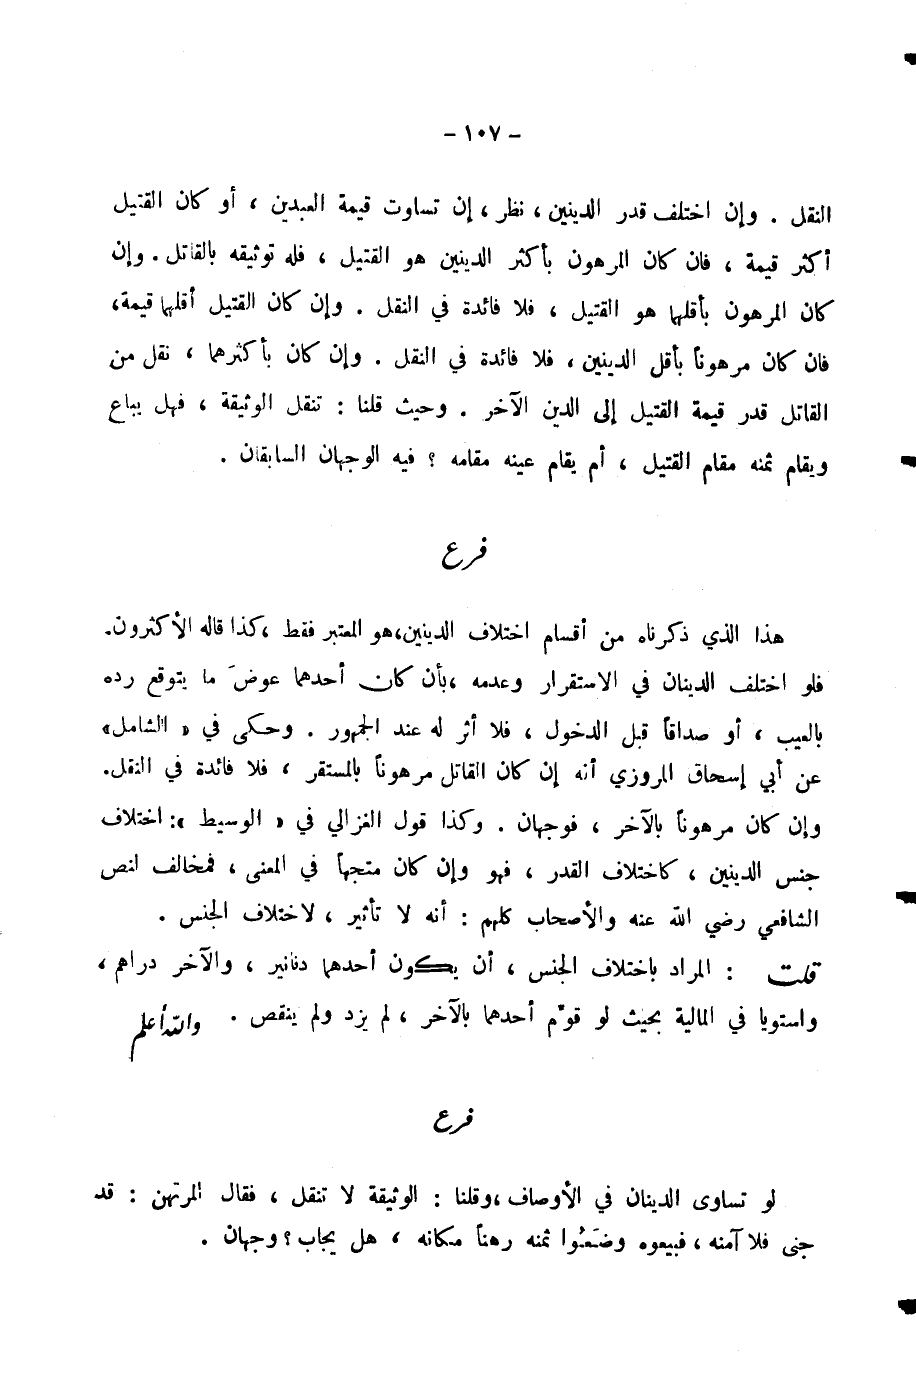 - ١٠٧ -
النقل . وإن اختلف قدر الدينين ، نظر ، إن تساوت قيمة العبدين ، أو كان القتيل
أكثر قيمة ، فان كان المرهون بأكثر الدينين هو القتيل ، فله توثيقه بالقاتل . وإن
كان المرهون بأقلها هو القتيل ، فلا فائدة في النقل . وإن كان القتيل أقلها قيمة،
فان كان مرهوناً بأقل الدينين ، فلا فائدة في النقل . وإن كان بأكثرهما ، نقل من
القاتل قدر قيمة القتيل إلى الدين الآخر . وحيث قلنا : تنقل الوثيقة ، فهل يباع
ويقام ثمنه مقام القتيل ، أم يقام عينه مقامه ؟ فيه الوجهان السابقان .
فرع
هذا الذي ذكرناه من أقسام اختلاف الدينين،هو المعتبر فقط ،كذا قاله الأكثرون.
فلو اختلف الدينان في الاستقرار وعدمه ،بأن كان أحدهما عوضَ ما يتوقع رده
بالعيب ، أو صداقاً قبل الدخول ، فلا أثر له عند الجمهور . وحكى في « الشامل»
عن أبي إسحاق المروزي أنه إن كان القاتل مرهوناً بالمستقر ، فلا فائدة في النقل.
وإن كان مرهوناً بالآخر ، فوجهان . وكذا قول الغزالي في « الوسيط »: اختلاف
جنس الدينين ، كاختلاف القدر ، فهو وإن كان متجهاً في المعنى ، فمخالف لنص
الشافعي رضي الله عنه والأصحاب كلهم : أنه لا تأثير ، لاختلاف الجنس .
قلت : المراد باختلاف الجنس ، أن يكون أحدهما دنانير ، والآخر دراهم ،
واستويا في المالية بحيث لو قوّم أحدهما بالآخر ، لم يزد ولم ينقص . والله أعلم
فرع
لو تساوى الدينان في الأوصاف ،وقلنا : الوثيقة لا تنقل ، فقال المرتهن : قد
جنى فلا آمنه ، فبيعوه وضَعُوا ثمنه رهناً مكانه ، هل يجاب ؟ وجهان .